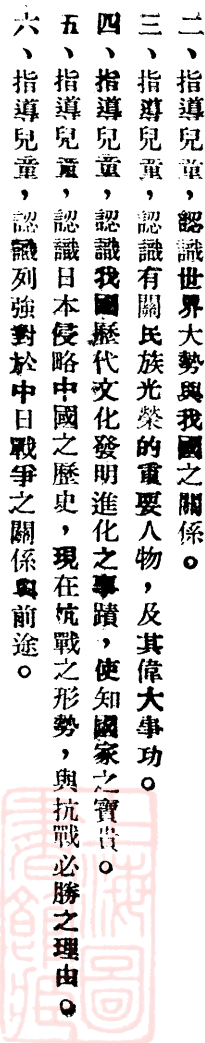 二、指導兒童，認識世界大勢與我國之關係。
三、指導兒童，認識有關民族光榮的重要人物，及其偉大事功。
四、指導兒童，認識我國歷代文化發明進化之事蹟，使知國家之寶貴。
五、指導兒童，認識日本侵略中國之歷史，現在抗戰之形勢，與抗戰必勝之理由。
六、指導兒童，認識列強對於中日戰爭之關係與前途。
上海圖書館